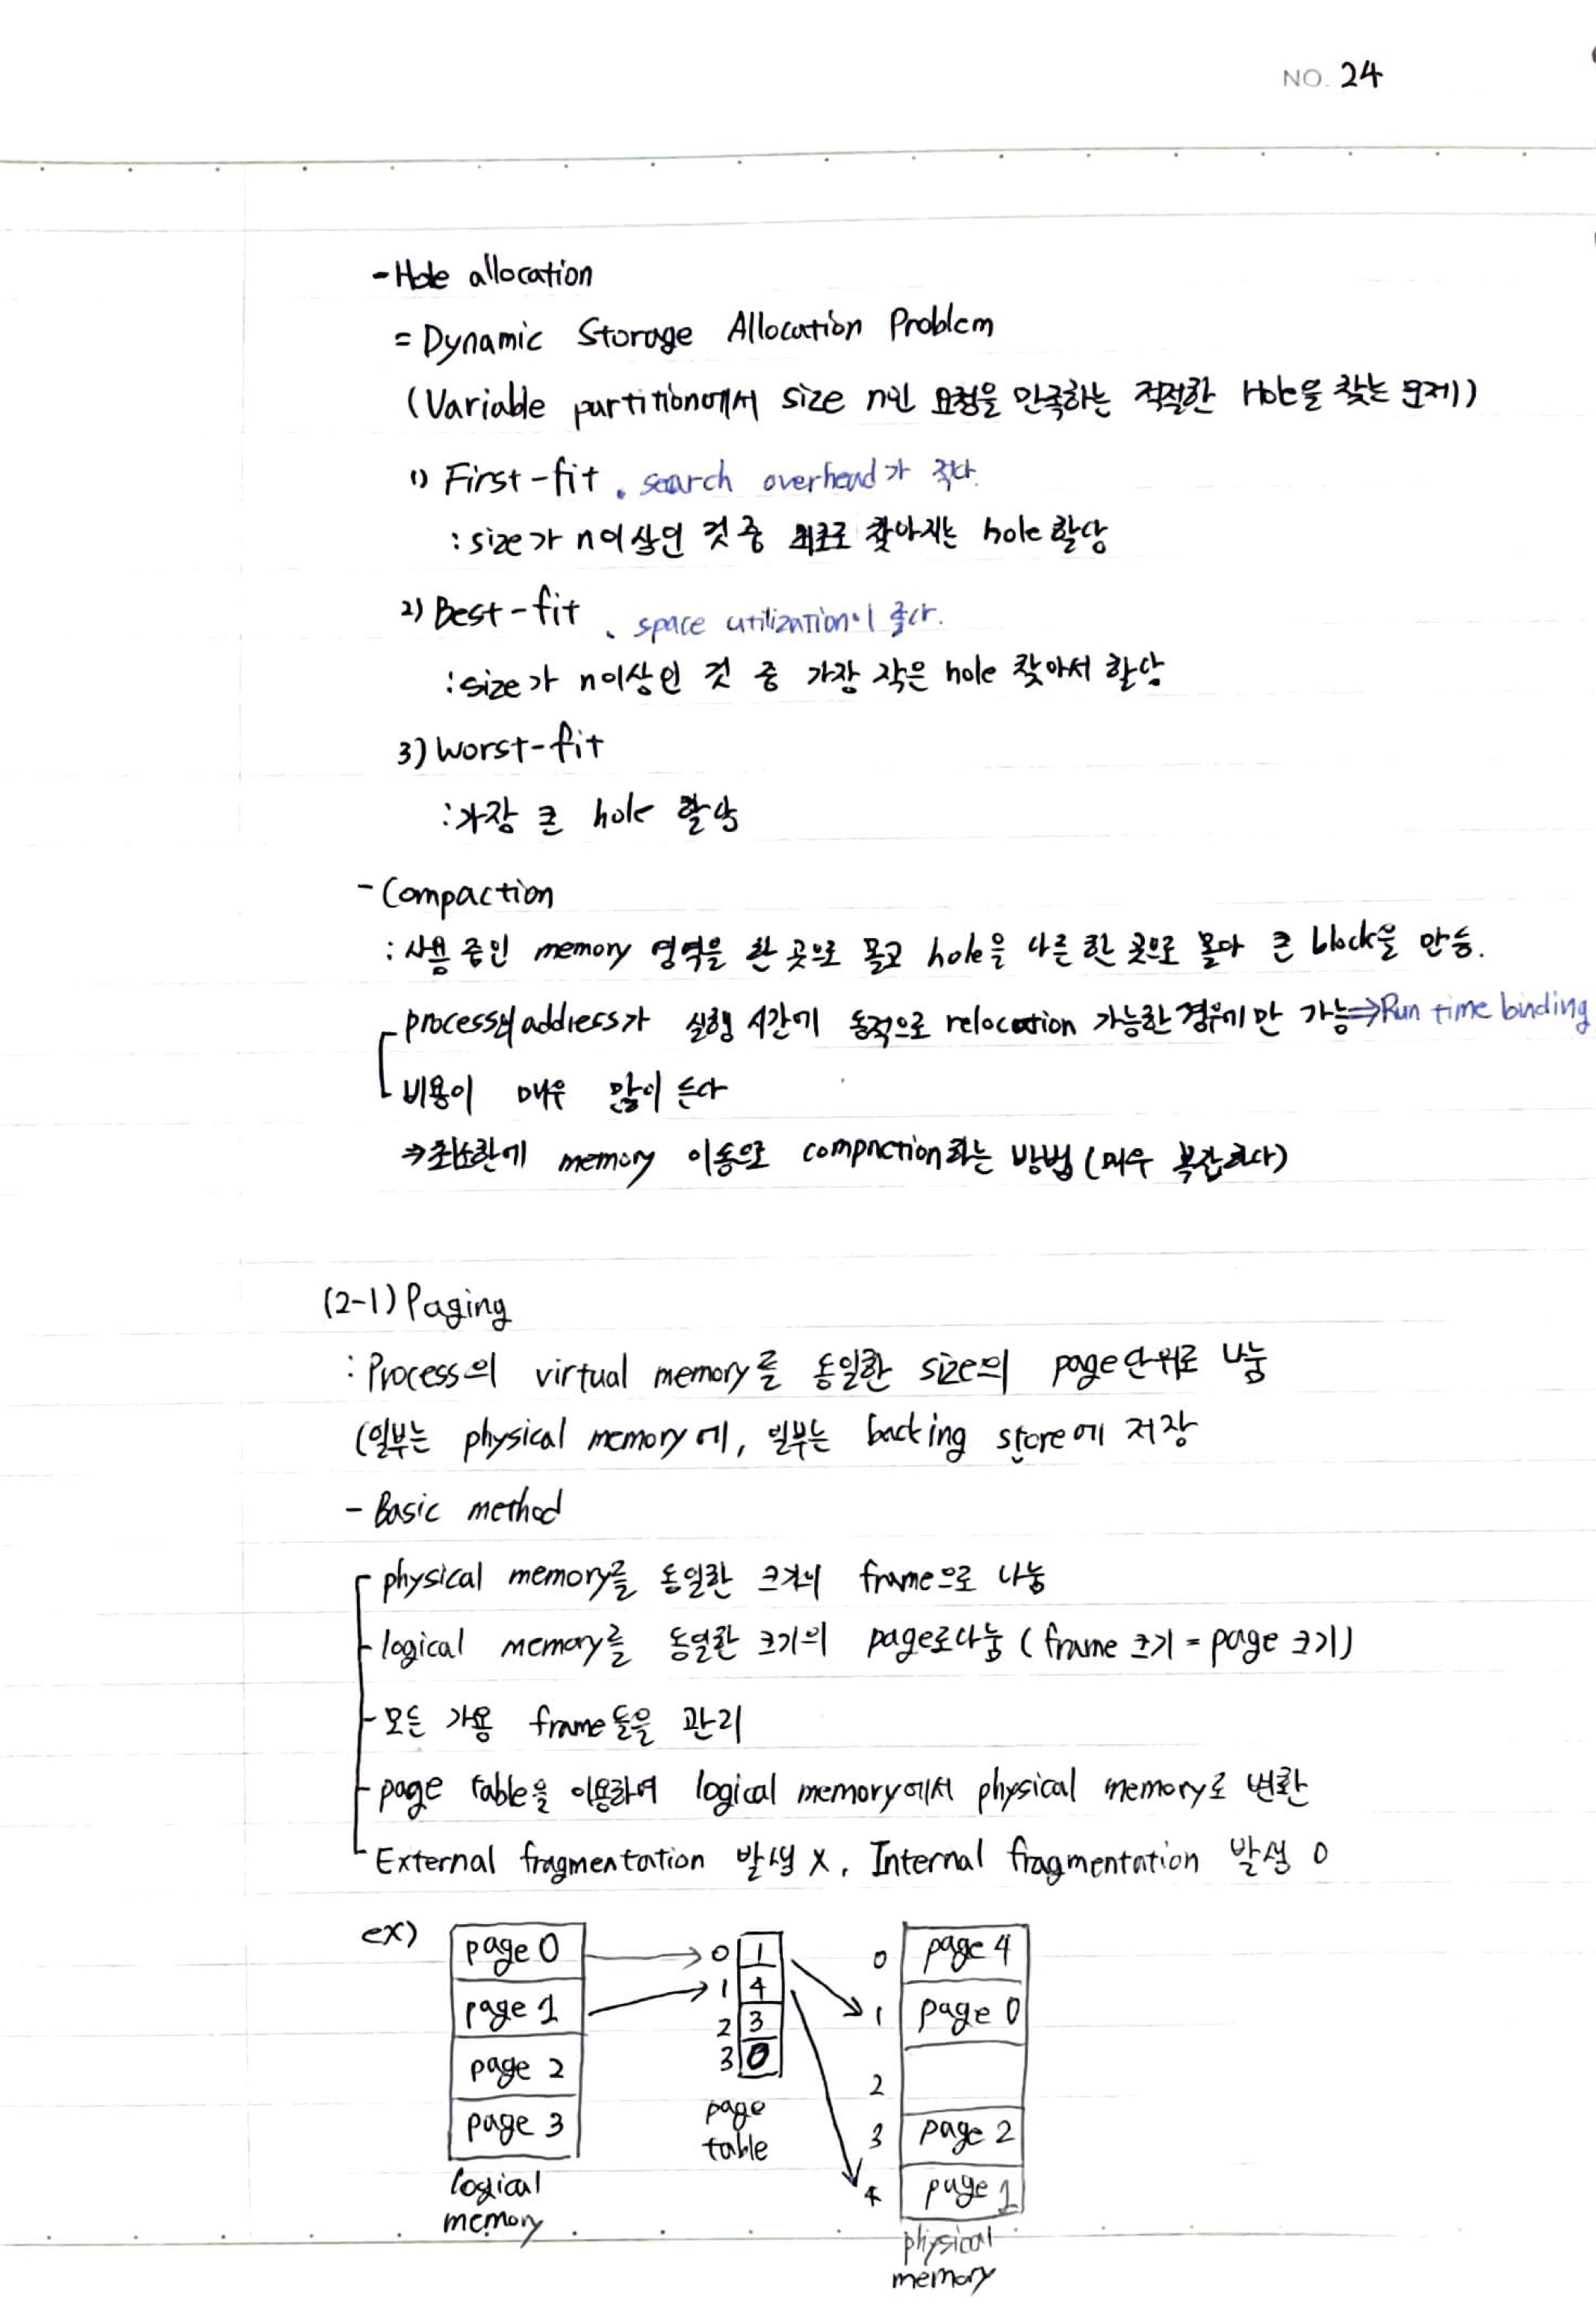 NO. 24
- Hole allocation
= Dynamic Storage Allocation Problem
(Variable partition에서 size n인 요청을 만족하는 적절한 Hole을 찾는 문제)
1) First-fit . search overhead가 적다.
: size가 n이상인 것 중 최초로 찾아지는 hole 할당
2) Best-fit . space utilization이 좋다.
: size가 n이상인 것 중 가장 작은 hole 찾아서 할당
3) Worst-fit
: 가장 큰 hole 할당
- Compaction
: 사용 중인 memory 영역을 한 곳으로 몰고 hole을 다른 한 곳으로 몰아 큰 block을 만듦.
process의 address가 실행 시간에 동적으로 relocation 가능한 경우에만 가능⇒Run time binding
비용이 매우 많이 든다
⇒최소한에 memory 이동으로 compaction하는 방법 (매우 복잡하다)
(2-1) Paging
: Process의 virtual memory를 동일한 size의 page단위로 나눔
(일부는 physical memory에, 일부는 backing store에 저장
- Basic method
physical memory를 동일한 크기의 frame으로 나눔
logical memory를 동일한 크기의 page로 나눔 (frame 크기 = page 크기)
모든 가용 frame들을 관리
page table을 이용하여 logical memory에서 physical memory로 변환
External fragmentation 발생 X, Internal fragmentation 발생 O
ex)
page 0
page 1
page 2
page 3
logical
memory
0 1
1 4
2 3
3 0
page
table
0 page 4
1 page 0
2
3 page 2
4 page 1
physical
memory